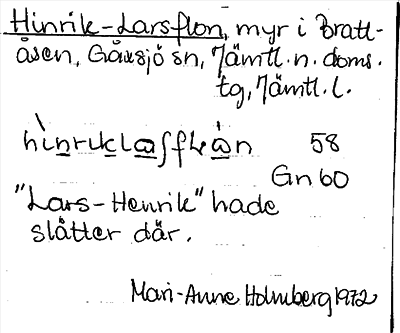 Hinrik-Larsflon, myr i Bratt-
åsen, Gåxsjö sn, Jämtl. n. doms.
tg, Jämtl. l.
58
Gn 60
"Lars-Henrik" hade
slåtter där.
Mari-Anne Holmberg 1972